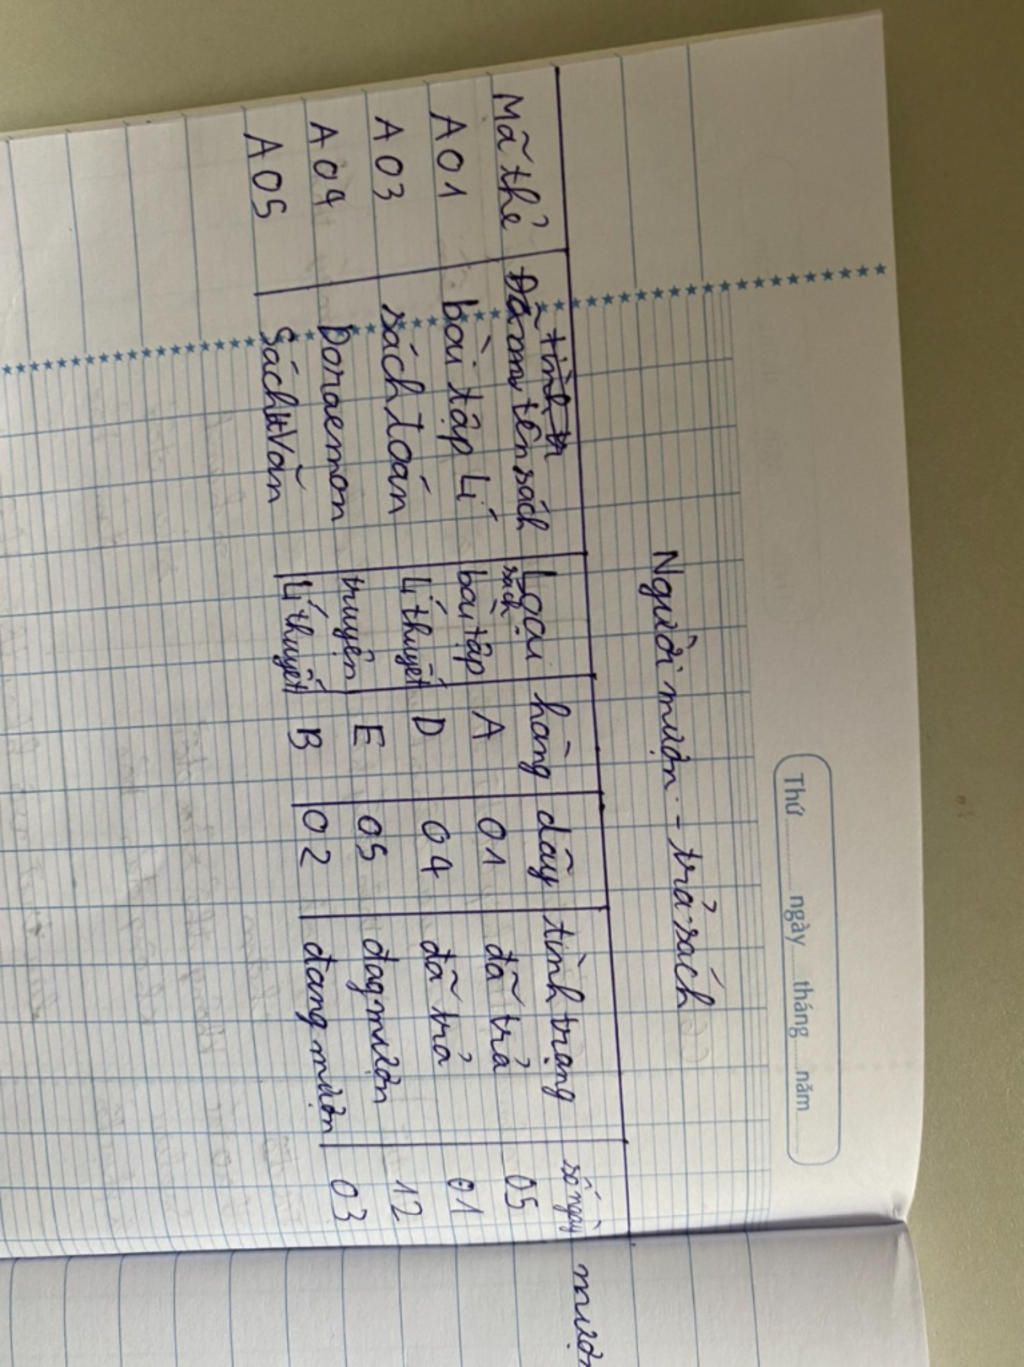 Thứ ngày tháng năm
Người mượn - trả sách
Mã thẻ tên sách Loại sách hàng dãy tình trạng số ngày mượn
A01 bài tập Lí bài tập A 01 đã trả 05
A03 sách toán Lí thuyết D 04 đã trả 01
A04 Doraemon truyện E 05 đagmượn 12
A05 Sách Văn Lí thuyết B 02 đang mượn 03